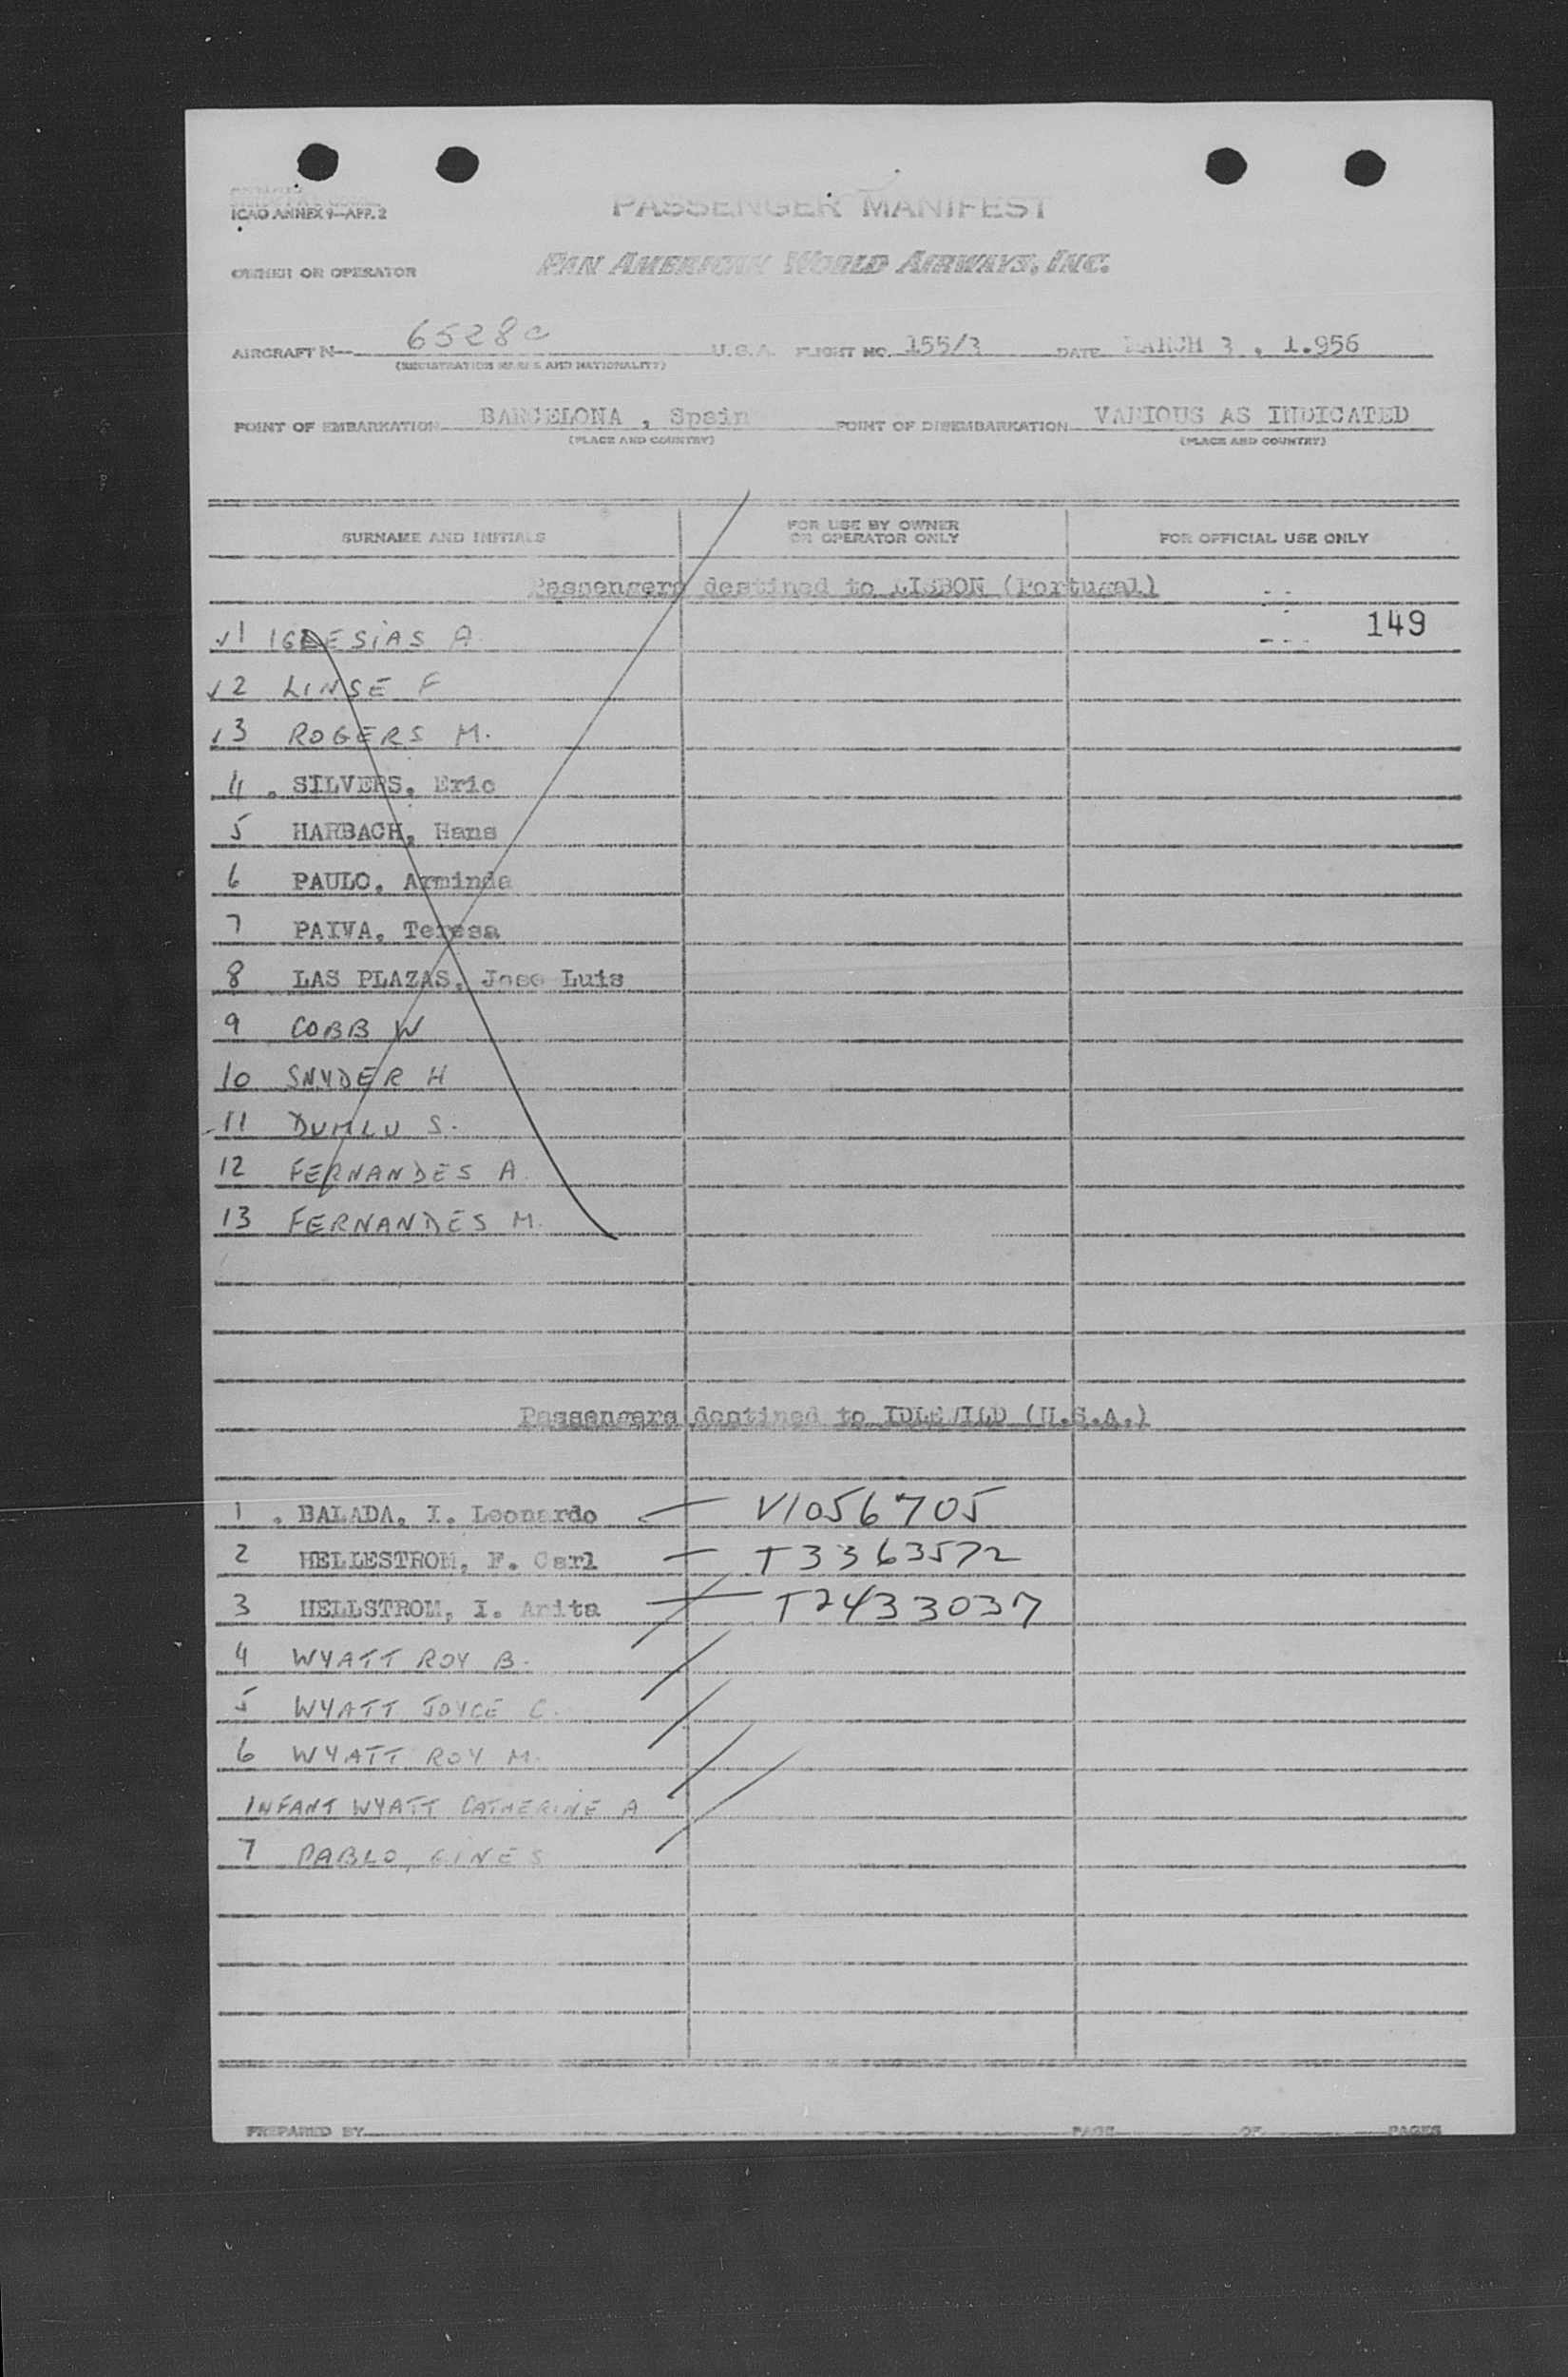 ICAO ANNEX 9—APP. 2
PASSENGER MANIFEST
OWNER OR OPERATOR PAN AMERICAN WORLD AIRWAYS, INC.
AIRCRAFT N— 6528C U.S.A. FLIGHT NO. 155/3 DATE MARCH 3 , 1.956
(REGISTRATION MARKS AND NATIONALITY)
POINT OF EMBARKATION BARCELONA , Spain POINT OF DISEMBARKATION VARIOUS AS INDICATED
(PLACE AND COUNTRY) (PLACE AND COUNTRY)
SURNAME AND INITIALS FOR USE BY OWNER OR OPERATOR ONLY FOR OFFICIAL USE ONLY
Passengers destined to LISBON (Portugal)
149
✓1 IGLESIAS A.
✓2 LINSE F
✓3 ROGERS M.
4 . SILVERS, Eric
5 HARBACH, Hans
6 PAULO, Arminda
7 PAIVA, Teresa
8 LAS PLAZAS, Jose Luis
9 COBB W
10 SNYDER H
11 DUMLU S.
12 FERNANDES A.
13 FERNANDES M.
Passengers destined to IDLEWILD (U.S.A.)
1 . BALADA, I. Leonardo — V1056705
2 HELLESTROM, F. Carl — T3363572
3 HELLSTROM, I. Anita — T2433037
4 WYATT ROY B.
5 WYATT JOYCE C.
6 WYATT ROY M.
INFANT WYATT CATHERINE A
7 PABLO, GINES
PREPARED BY PAGE OF PAGES